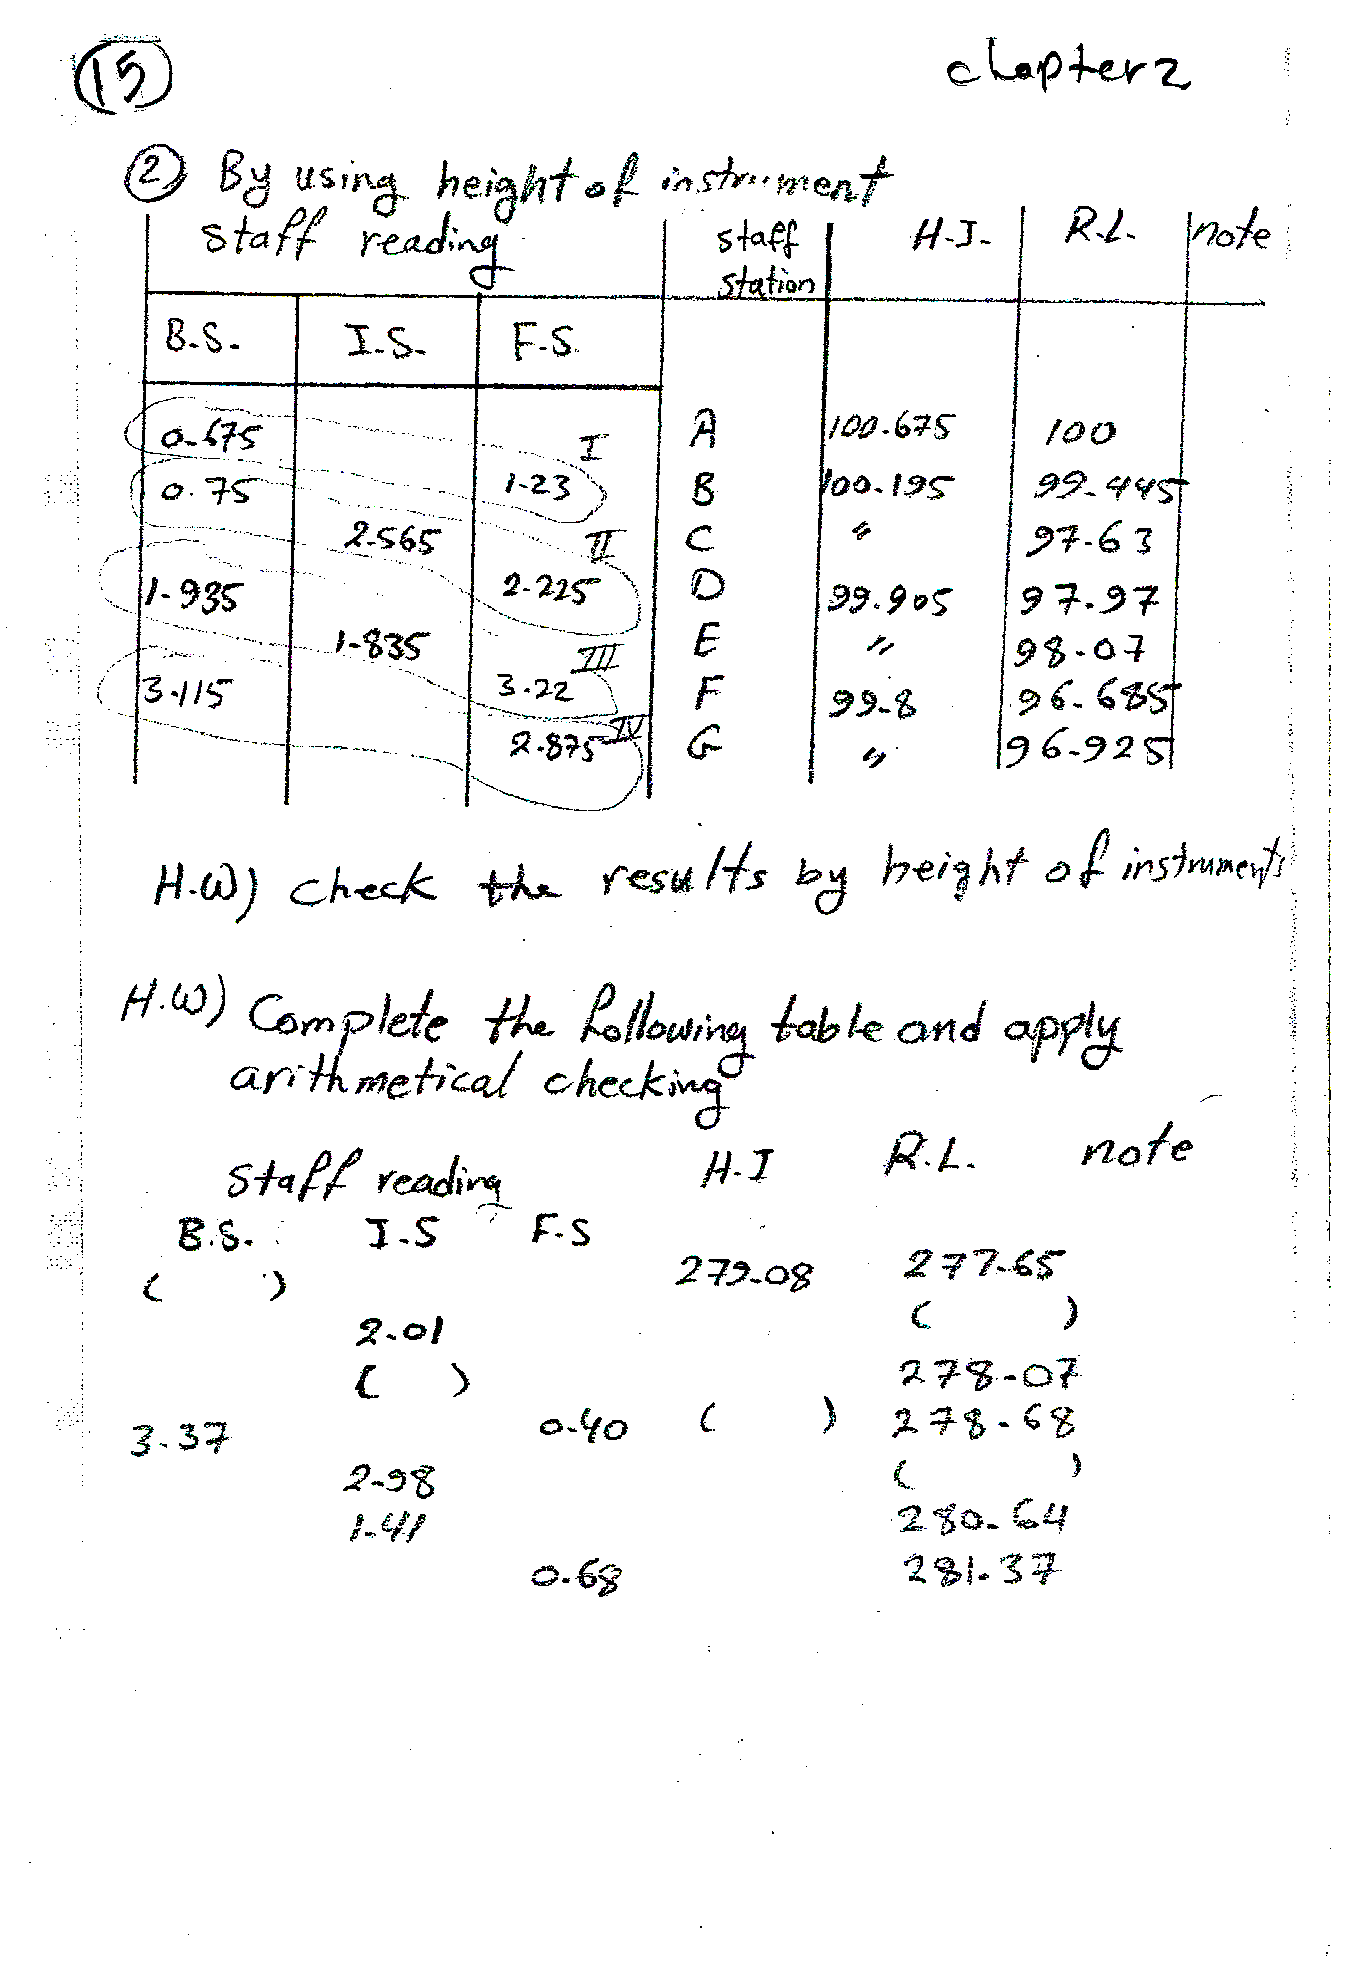 15 chapter 2
② By using height of instrument
staff reading staff station H.I. R.L. note
B.S. I.S. F.S.
0.675 I A 100.675 100
0.75 1.23 B 100.195 99.445
2.565 II C " 97.63
1.935 2.225 D 99.905 97.97
1.835 III E " 98.07
3.115 3.22 F 99.8 96.685
2.875 IV G " 96.925
H.W) check the results by height of instruments
H.W) Complete the following table and apply
arithmetical checking
staff reading H.I R.L. note
B.S. I.S F.S
( ) 279.08 277.65
2.01 ( )
( ) 278.07
3.37 0.40 ( ) 278.68
2.98 ( )
1.41 280.64
0.68 281.37